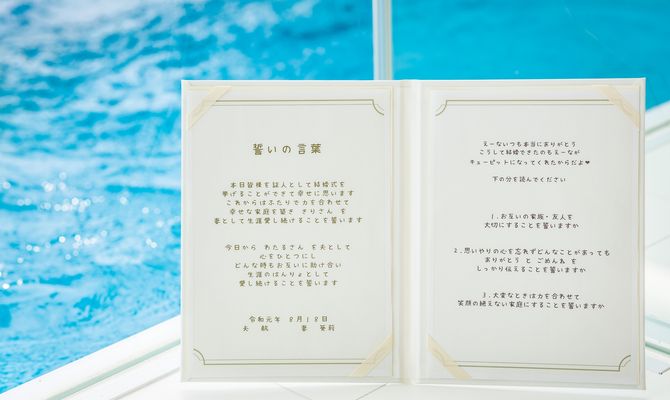 誓いの言葉
本日皆様を証人として結婚式を
挙げることができて幸せに思います
これからはふたりで力を合わせて
幸せな家庭を築き きりさん を
妻として生涯愛し続けることを誓います
今日から わたるさん を夫として
心をひとつにし
どんな時もお互いに助け合い
生涯のはんりょとして
愛し続けることを誓います
令和元年 8月18日
夫 航 妻 葵莉
えーないつも本当にありがとう
こうして結婚できたのもえーなが
キューピットになってくれたからだよ♥
下の分を読んでください
1.お互いの家族・友人を
大切にすることを誓いますか
2.思いやりの心を忘れずどんなことがあっても
ありがとう と ごめんね を
しっかり伝えることを誓いますか
3.大変なときは力を合わせて
笑顔の絶えない家庭にすることを誓いますか